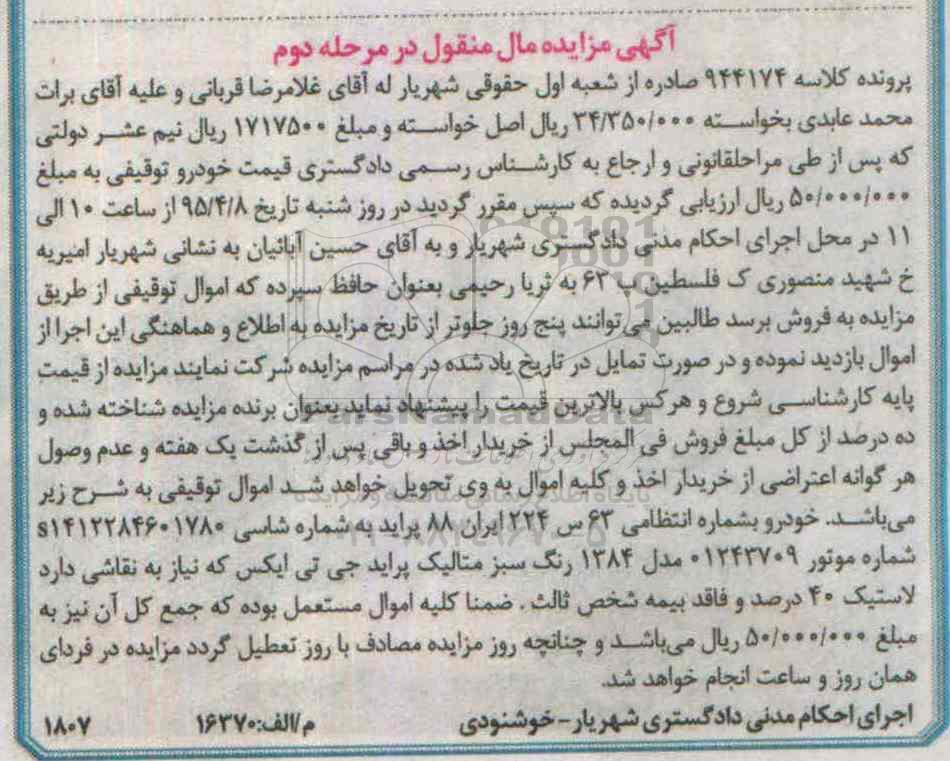 آگهی مزایده مال منقول در مرحله دوم
پرونده کلاسه ۹۴۴۱۷۴ صادره از شعبه اول حقوقی شهریار له آقای غلامرضا قربانی و علیه آقای برات
محمد عابدی بخواسته ۳۴/۳۵۰/۰۰۰ ریال اصل خواسته و مبلغ ۱۷۱۷۵۰۰ ریال نیم عشر دولتی
که پس از طی مراحلقانونی و ارجاع به کارشناس رسمی دادگستری قیمت خودرو توقیفی به مبلغ
۵۰/۰۰۰/۰۰۰ ریال ارزیابی گردیده که سپس مقرر گردید در روز شنبه تاریخ ۹۵/۴/۸ از ساعت ۱۰ الی
۱۱ در محل اجرای احکام مدنی دادگستری شهریار و به آقای حسین آبائیان به نشانی شهریار امیریه
خ شهید منصوری ک فلسطین پ ۶۳ به ثریا رحیمی بعنوان حافظ سپرده که اموال توقیفی از طریق
مزایده به فروش برسد طالبین می‌توانند پنج روز جلوتر از تاریخ مزایده به اطلاع و هماهنگی این اجرا از
اموال بازدید نموده و در صورت تمایل در تاریخ یاد شده در مراسم مزایده شرکت نمایند مزایده از قیمت
پایه کارشناسی شروع و هرکس بالاترین قیمت را پیشنهاد نماید بعنوان برنده مزایده شناخته شده و
ده درصد از کل مبلغ فروش فی المجلس از خریدار اخذ و باقی پس از گذشت یک هفته و عدم وصول
هر گوانه اعتراضی از خریدار اخذ و کلیه اموال به وی تحویل خواهد شد اموال توقیفی به شرح زیر
می‌باشد. خودرو بشماره انتظامی ۶۳ س ۲۲۴ ایران ۸۸ پراید به شماره شاسی s۱۴۱۲۲۸۴۶۰۱۷۸۰
شماره موتور ۰۱۲۴۳۷۰۹ مدل ۱۳۸۴ رنگ سبز متالیک پراید جی تی ایکس که نیاز به نقاشی دارد
لاستیک ۴۰ درصد و فاقد بیمه شخص ثالث . ضمنا کلیه اموال مستعمل بوده که جمع کل آن نیز به
مبلغ ۵۰/۰۰۰/۰۰۰ ریال می‌باشد و چنانچه روز مزایده مصادف با روز تعطیل گردد مزایده در فردای
همان روز و ساعت انجام خواهد شد.
اجرای احکام مدنی دادگستری شهریار-خوشنودی م/الف:۱۶۳۷۰ ۱۸۰۷
ParsNamadData